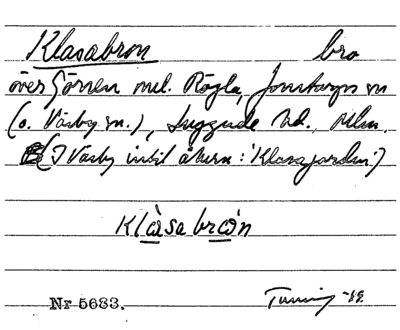 Klasabron bro
över Görren mel. Rögla, Jonstorps sn
(o. Väsby sn.), Luggude hd., Mlm.
(I Väsby intill åkern: 'Klasajorden')
Klàsa brωn
Nr 5633. Tuning -19